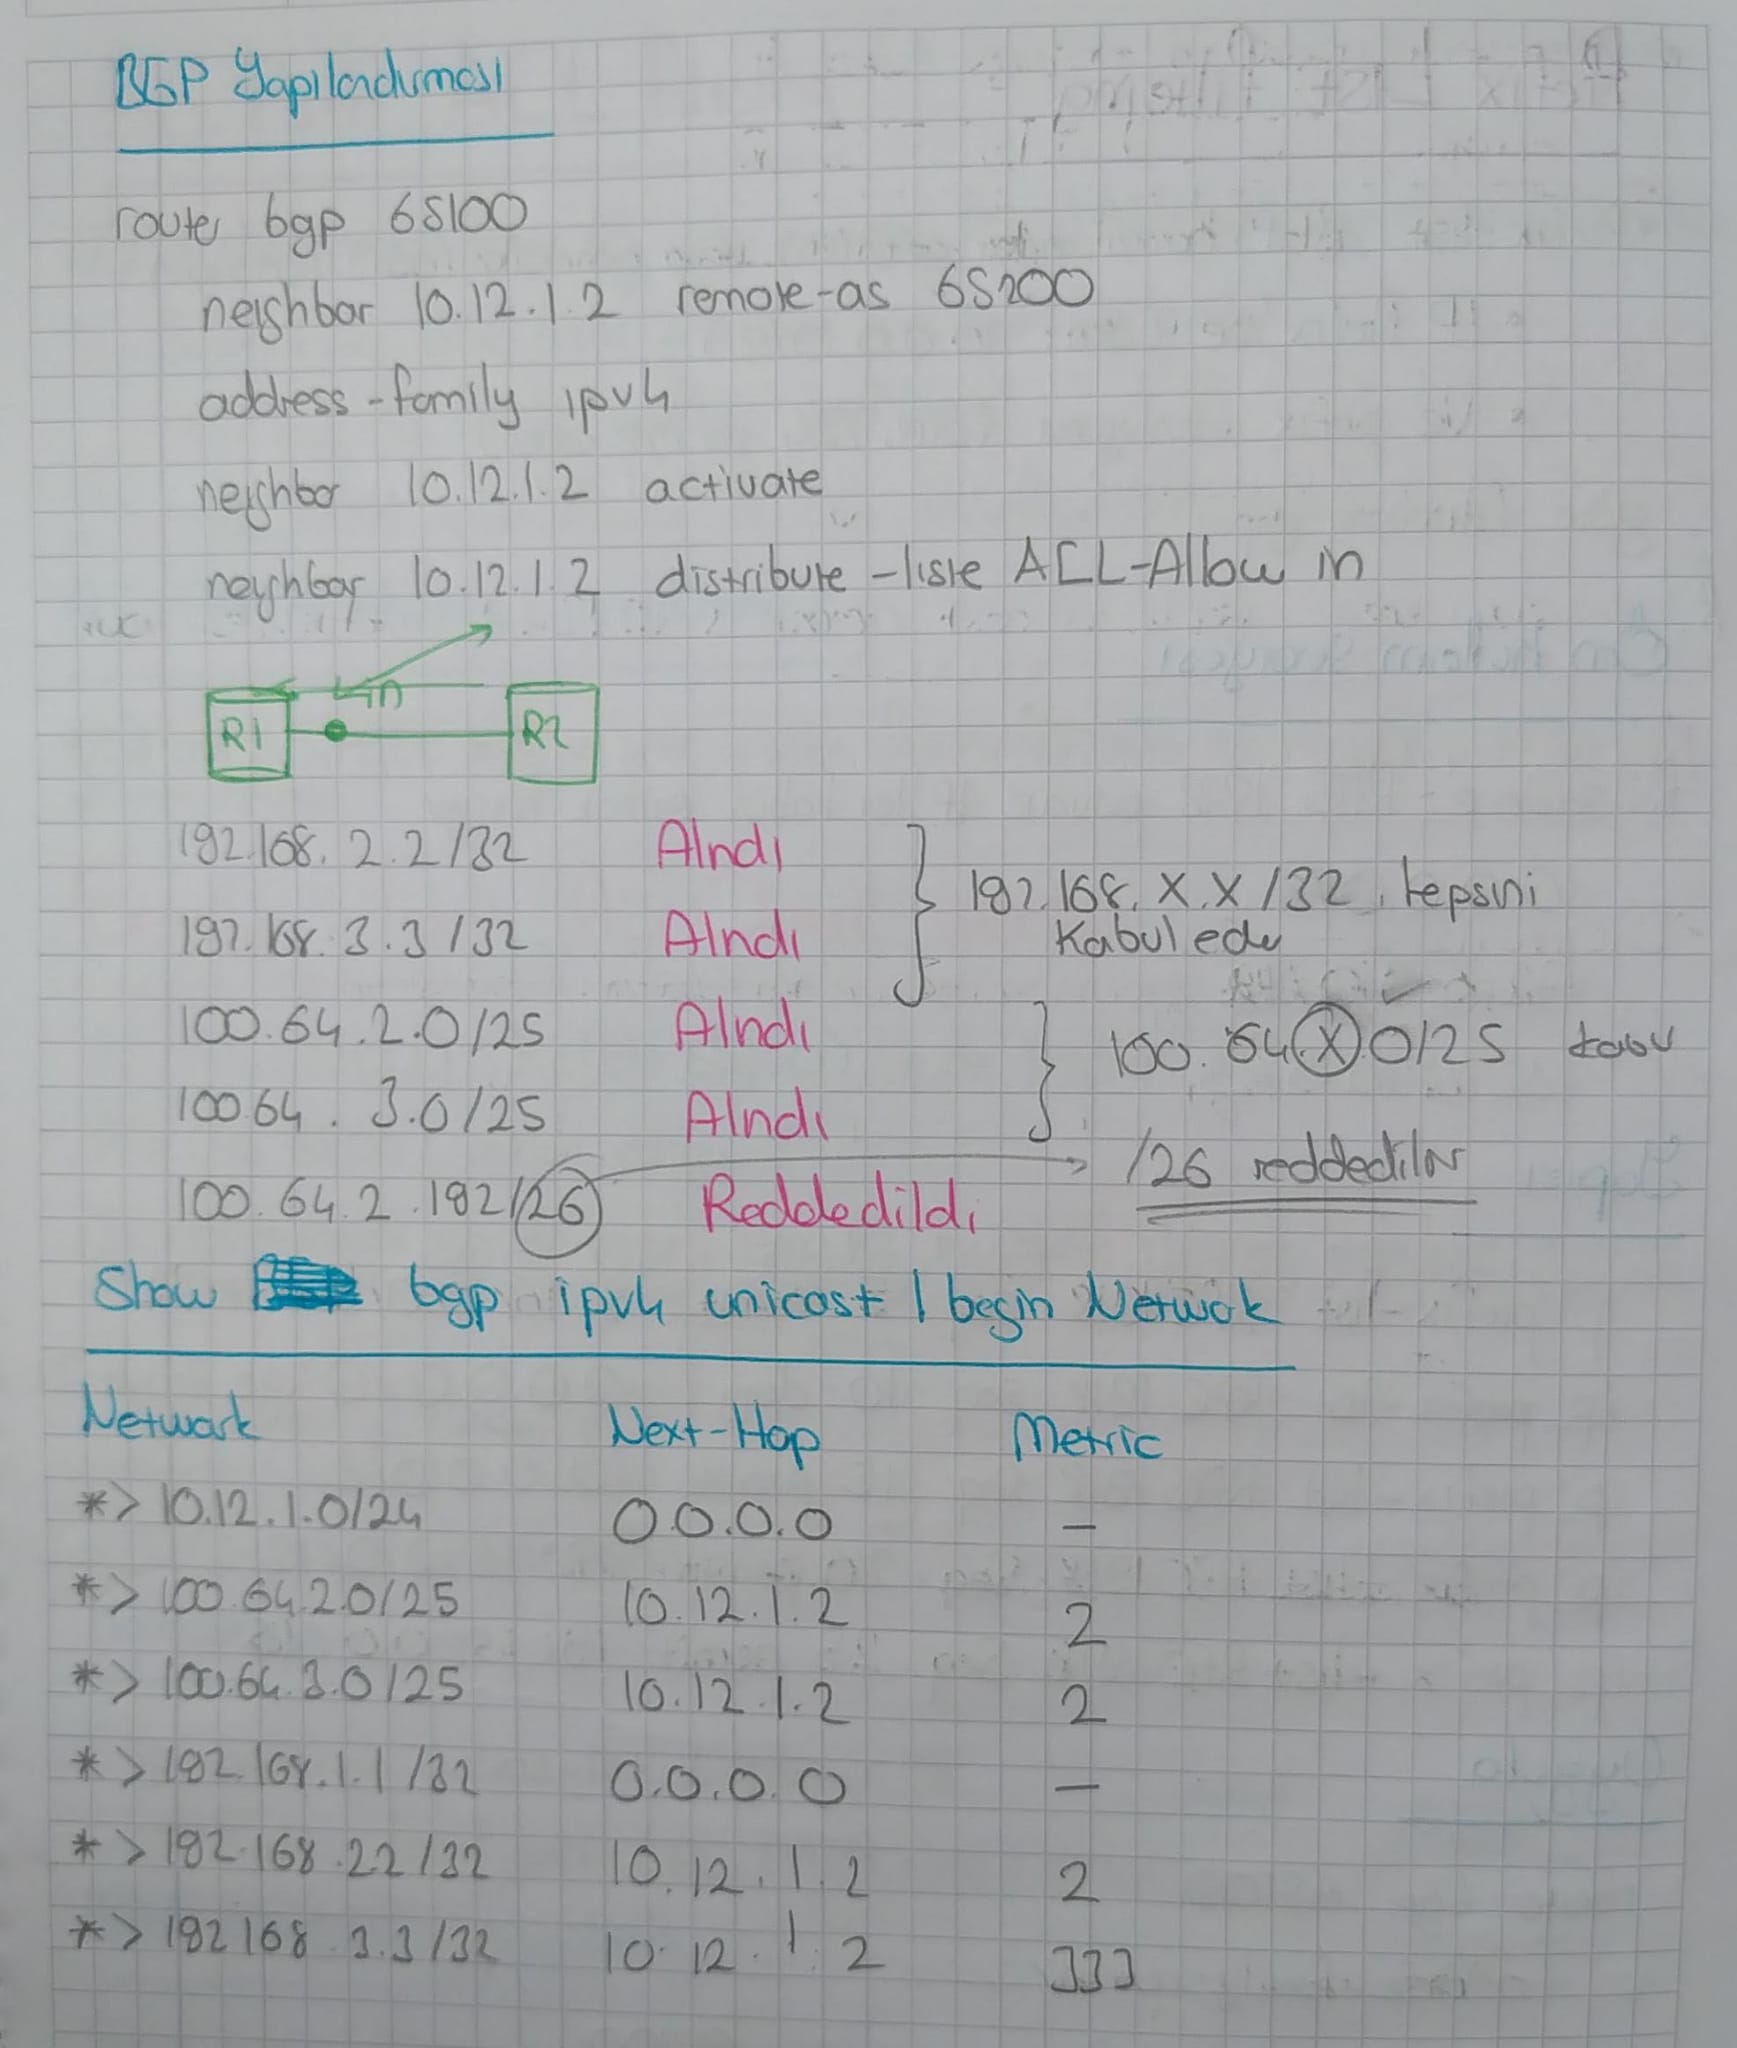 BGP Yapılandırması
router bgp 65100
neighbor 10.12.1.2 remote-as 65200
address-family ipv4
neighbor 10.12.1.2 activate
neighbor 10.12.1.2 distribute-liste ACL-Allow in
in
R1 R2
192.168.2.2/32 Alındı
192.168.3.3/32 Alındı
192.168.X.X/32 hepsini
Kabul eder
100.64.2.0/25 Alındı
100.64.3.0/25 Alındı
100.64.X.0/25 kabul
100.64.2.192/26 Reddedildi
/26 reddedilir
Show bgp ipv4 unicast | begin Network
Network Next-Hop Metric
*> 10.12.1.0/24 0.0.0.0 —
*> 100.64.2.0/25 10.12.1.2 2
*> 100.64.3.0/25 10.12.1.2 2
*> 192.168.1.1/32 0.0.0.0 —
*> 192.168.2.2/32 10.12.1.2 2
*> 192.168.3.3/32 10.12.1.2 333